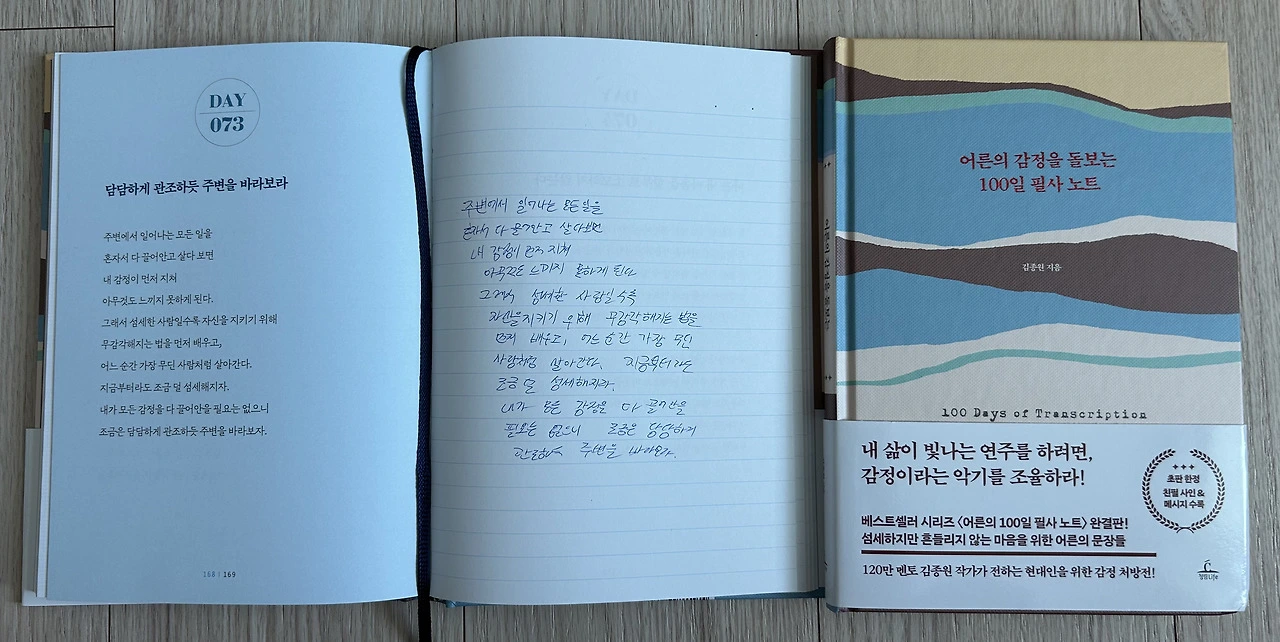 DAY
073
담담하게 관조하듯 주변을 바라보라
주변에서 일어나는 모든 일을
혼자서 다 끌어안고 살다 보면
내 감정이 먼저 지쳐
아무것도 느끼지 못하게 된다.
그래서 섬세한 사람일수록 자신을 지키기 위해
무감각해지는 법을 먼저 배우고,
어느 순간 가장 무딘 사람처럼 살아간다.
지금부터라도 조금 덜 섬세해지자.
내가 모든 감정을 다 끌어안을 필요는 없으니
조금은 담담하게 관조하듯 주변을 바라보자.
168 | 169
주변에서 일어나는 모든 일을
혼자서 다 끌어안고 살다보면
내 감정이 먼저 지쳐
아무것도 느끼지 못하게 된다
그래서 섬세한 사람일수록
자신을 지키기 위해 무감각해지는 법을
먼저 배우고, 어느 순간 가장 무딘
사람처럼 살아간다. 지금부터라도
조금 덜 섬세해지자.
내가 모든 감정을 다 끌어안을
필요는 없으니 조금은 담담하게
관조하듯 주변을 바라보자.
어른의 감정을 돌보는
어른의 감정을 돌보는
100일 필사 노트
김종원 지음
100 Days of Transcription
내 삶이 빛나는 연주를 하려면,
감정이라는 악기를 조율하라!
초판 한정
친필 사인 &
메시지 수록
베스트셀러 시리즈 〈어른의 100일 필사 노트〉 완결판!
섬세하지만 흔들리지 않는 마음을 위한 어른의 문장들
120만 멘토 김종원 작가가 전하는 현대인을 위한 감정 처방전!
청림Life